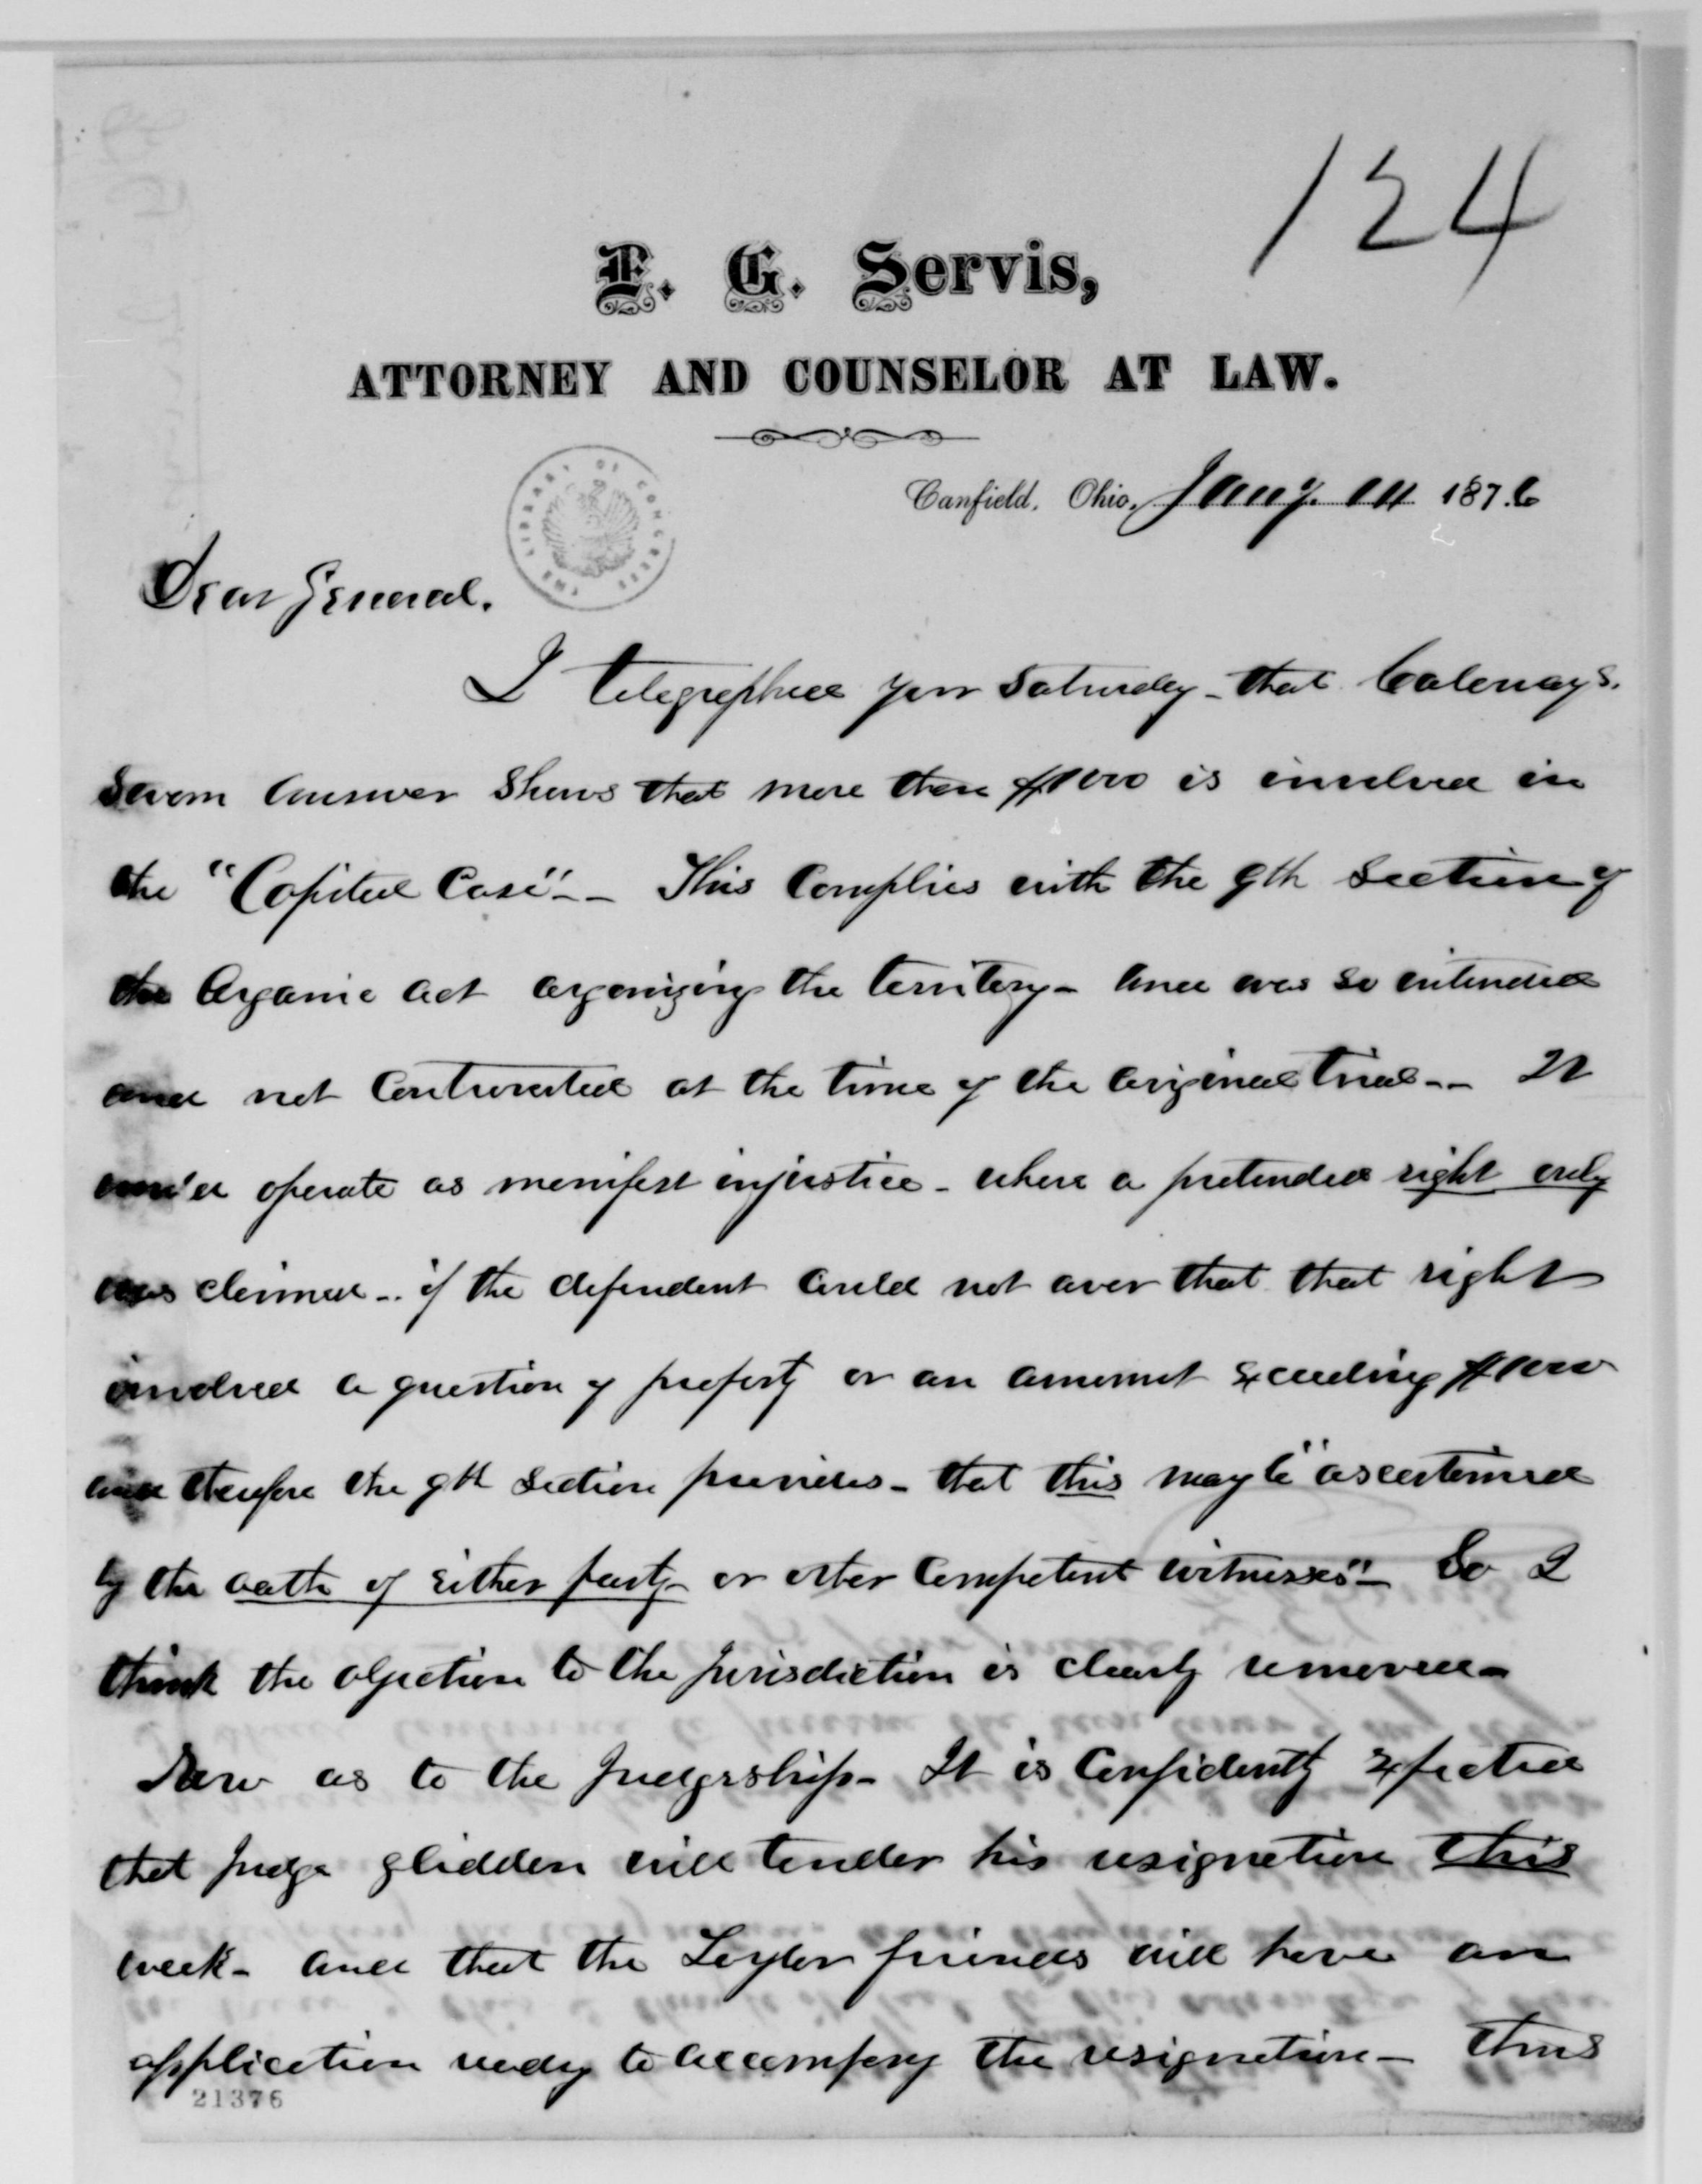 124
F. G. Servis,
ATTORNEY AND COUNSELOR AT LAW.
Canfield, Ohio, Jany. 1876
THE LIBRARY OF CONGRESS
Dear General.
I telegraphed you Saturday - that Callaways.
sworn answer shows that more than $1000 is involved in
the "Capitol Case" - - This complies with the 9th Section of
the Organic act organizing the territory - and was so intended
and not controverted at the time of the original trial - - It
would operate as manifest injustice - where a pretended right only
was claimed - - if the defendent could not aver that that right
involved a question of property or an amount exceeding $1000
and therefore the 9th Section provides - that this may be "ascertained
by the oath of either party - or other competent witnesses" - So I
think the objection to the jurisdiction is clearly removed -
Now as to the Judgeship - It is confidently expected
that Judge Glidden will tender his resignation this
week - and that the Leyler friends will have an
application ready to accompany the resignation - thus
21376